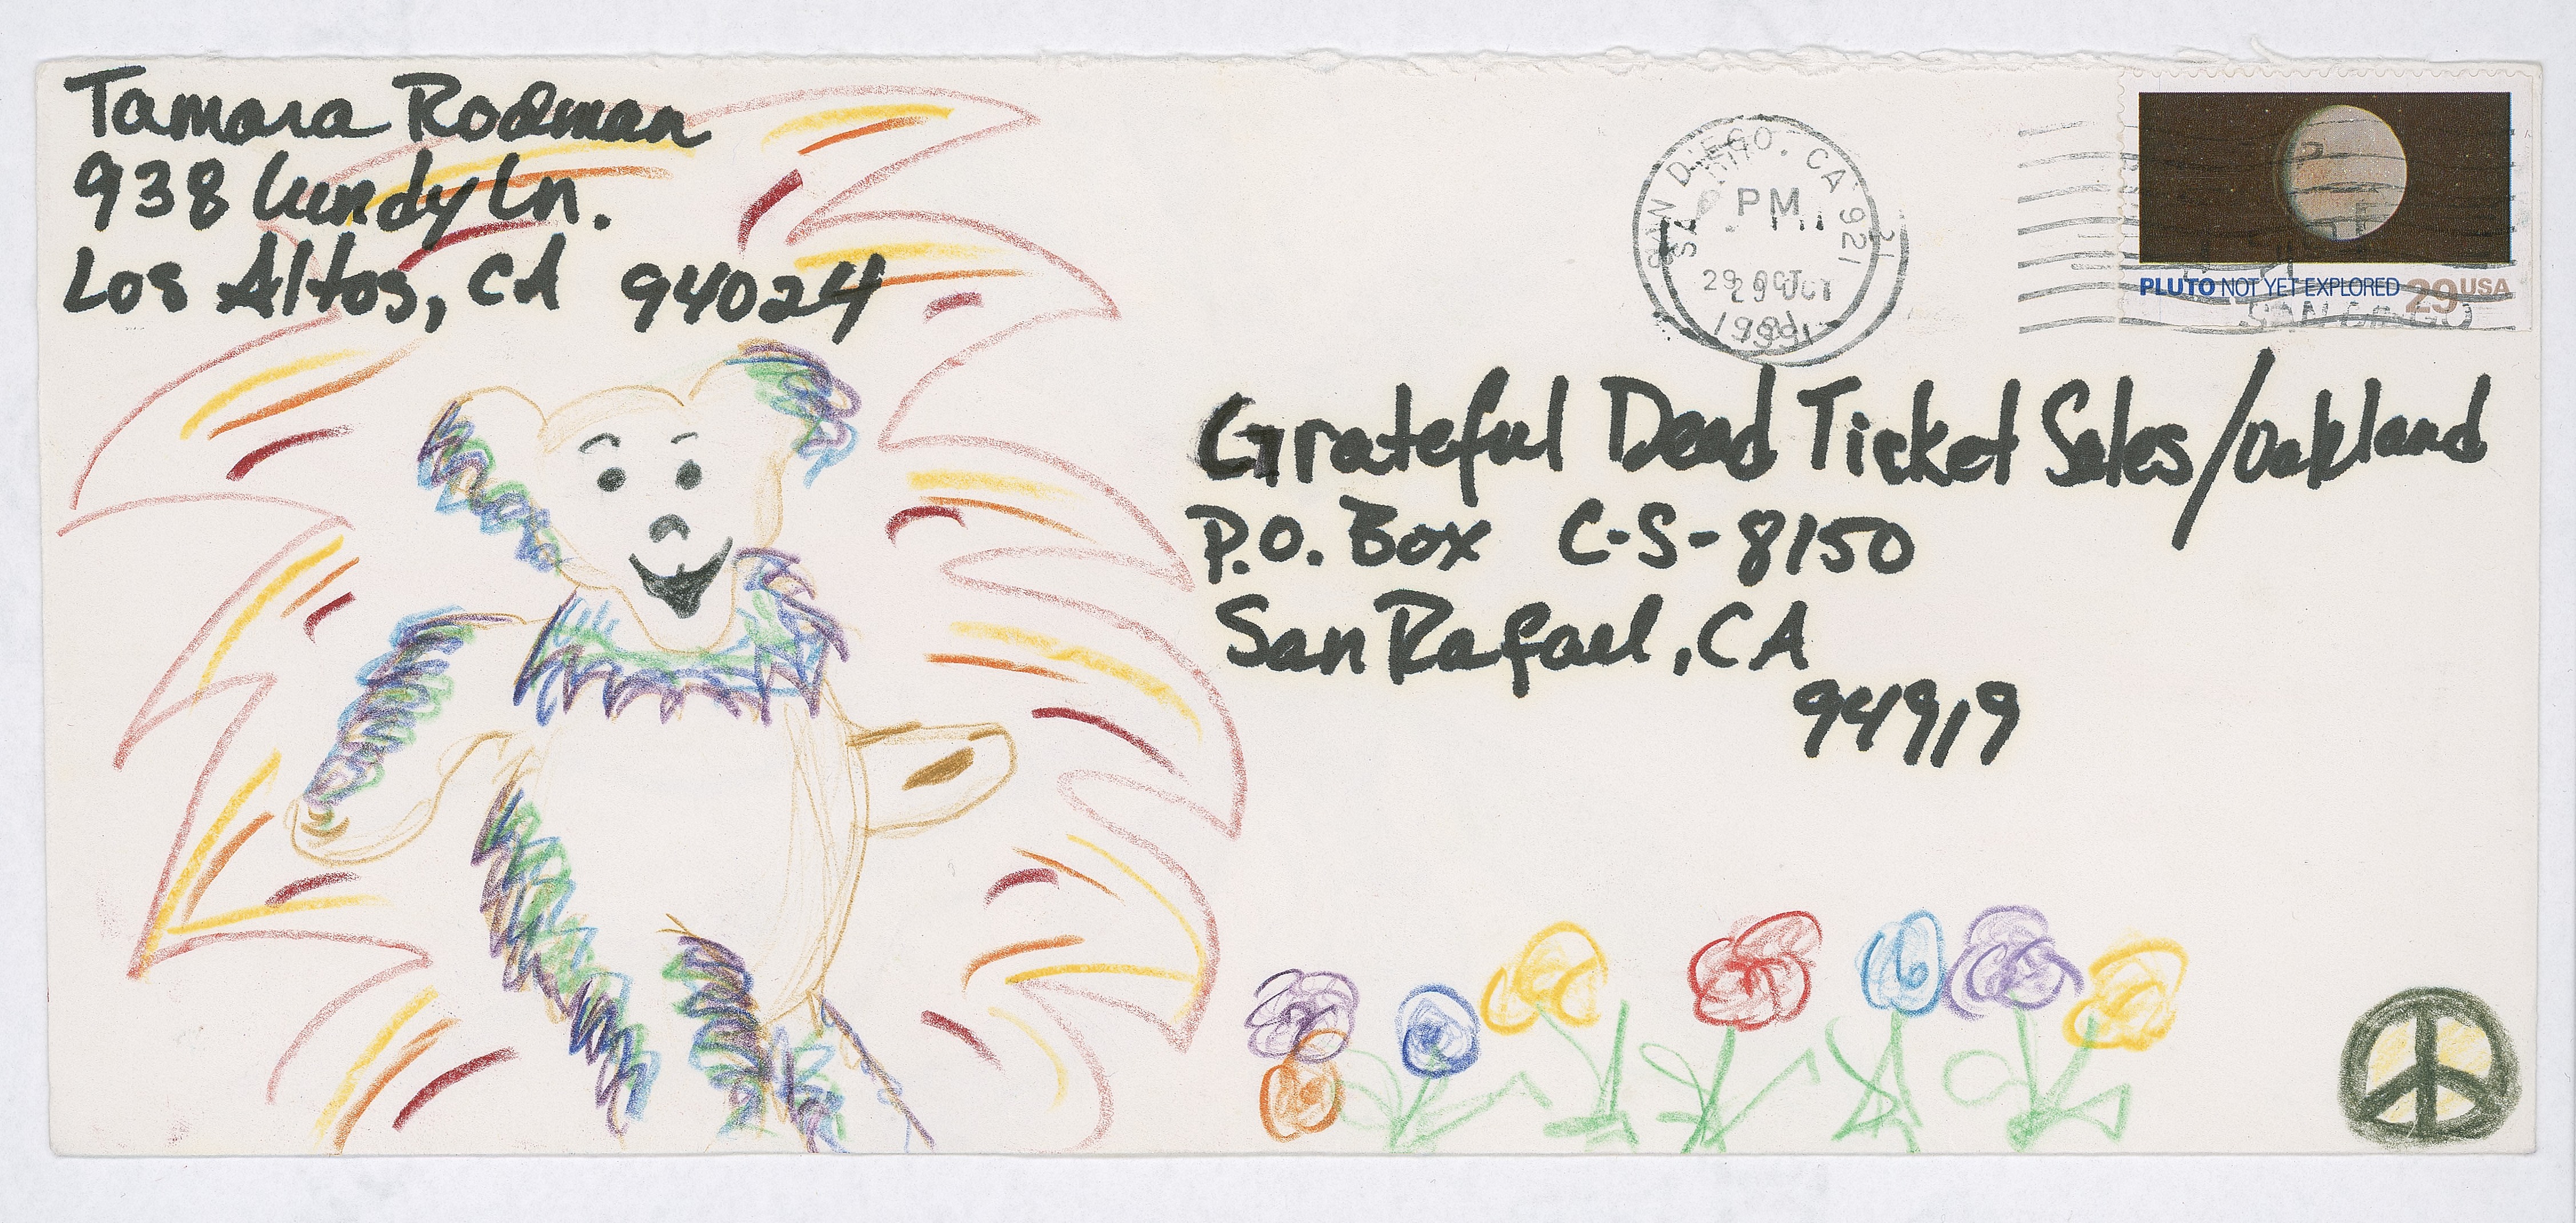 Tamara Rodman
938 Lundy Ln.
Los Altos, CA 94024
SAN DIEGO, CA 921
PM
29 OCT
1991
PLUTO NOT YET EXPLORED 29 USA
Grateful Dead Ticket Sales/Oakland
P.O. Box C-S-8150
San Rafael, CA
94919